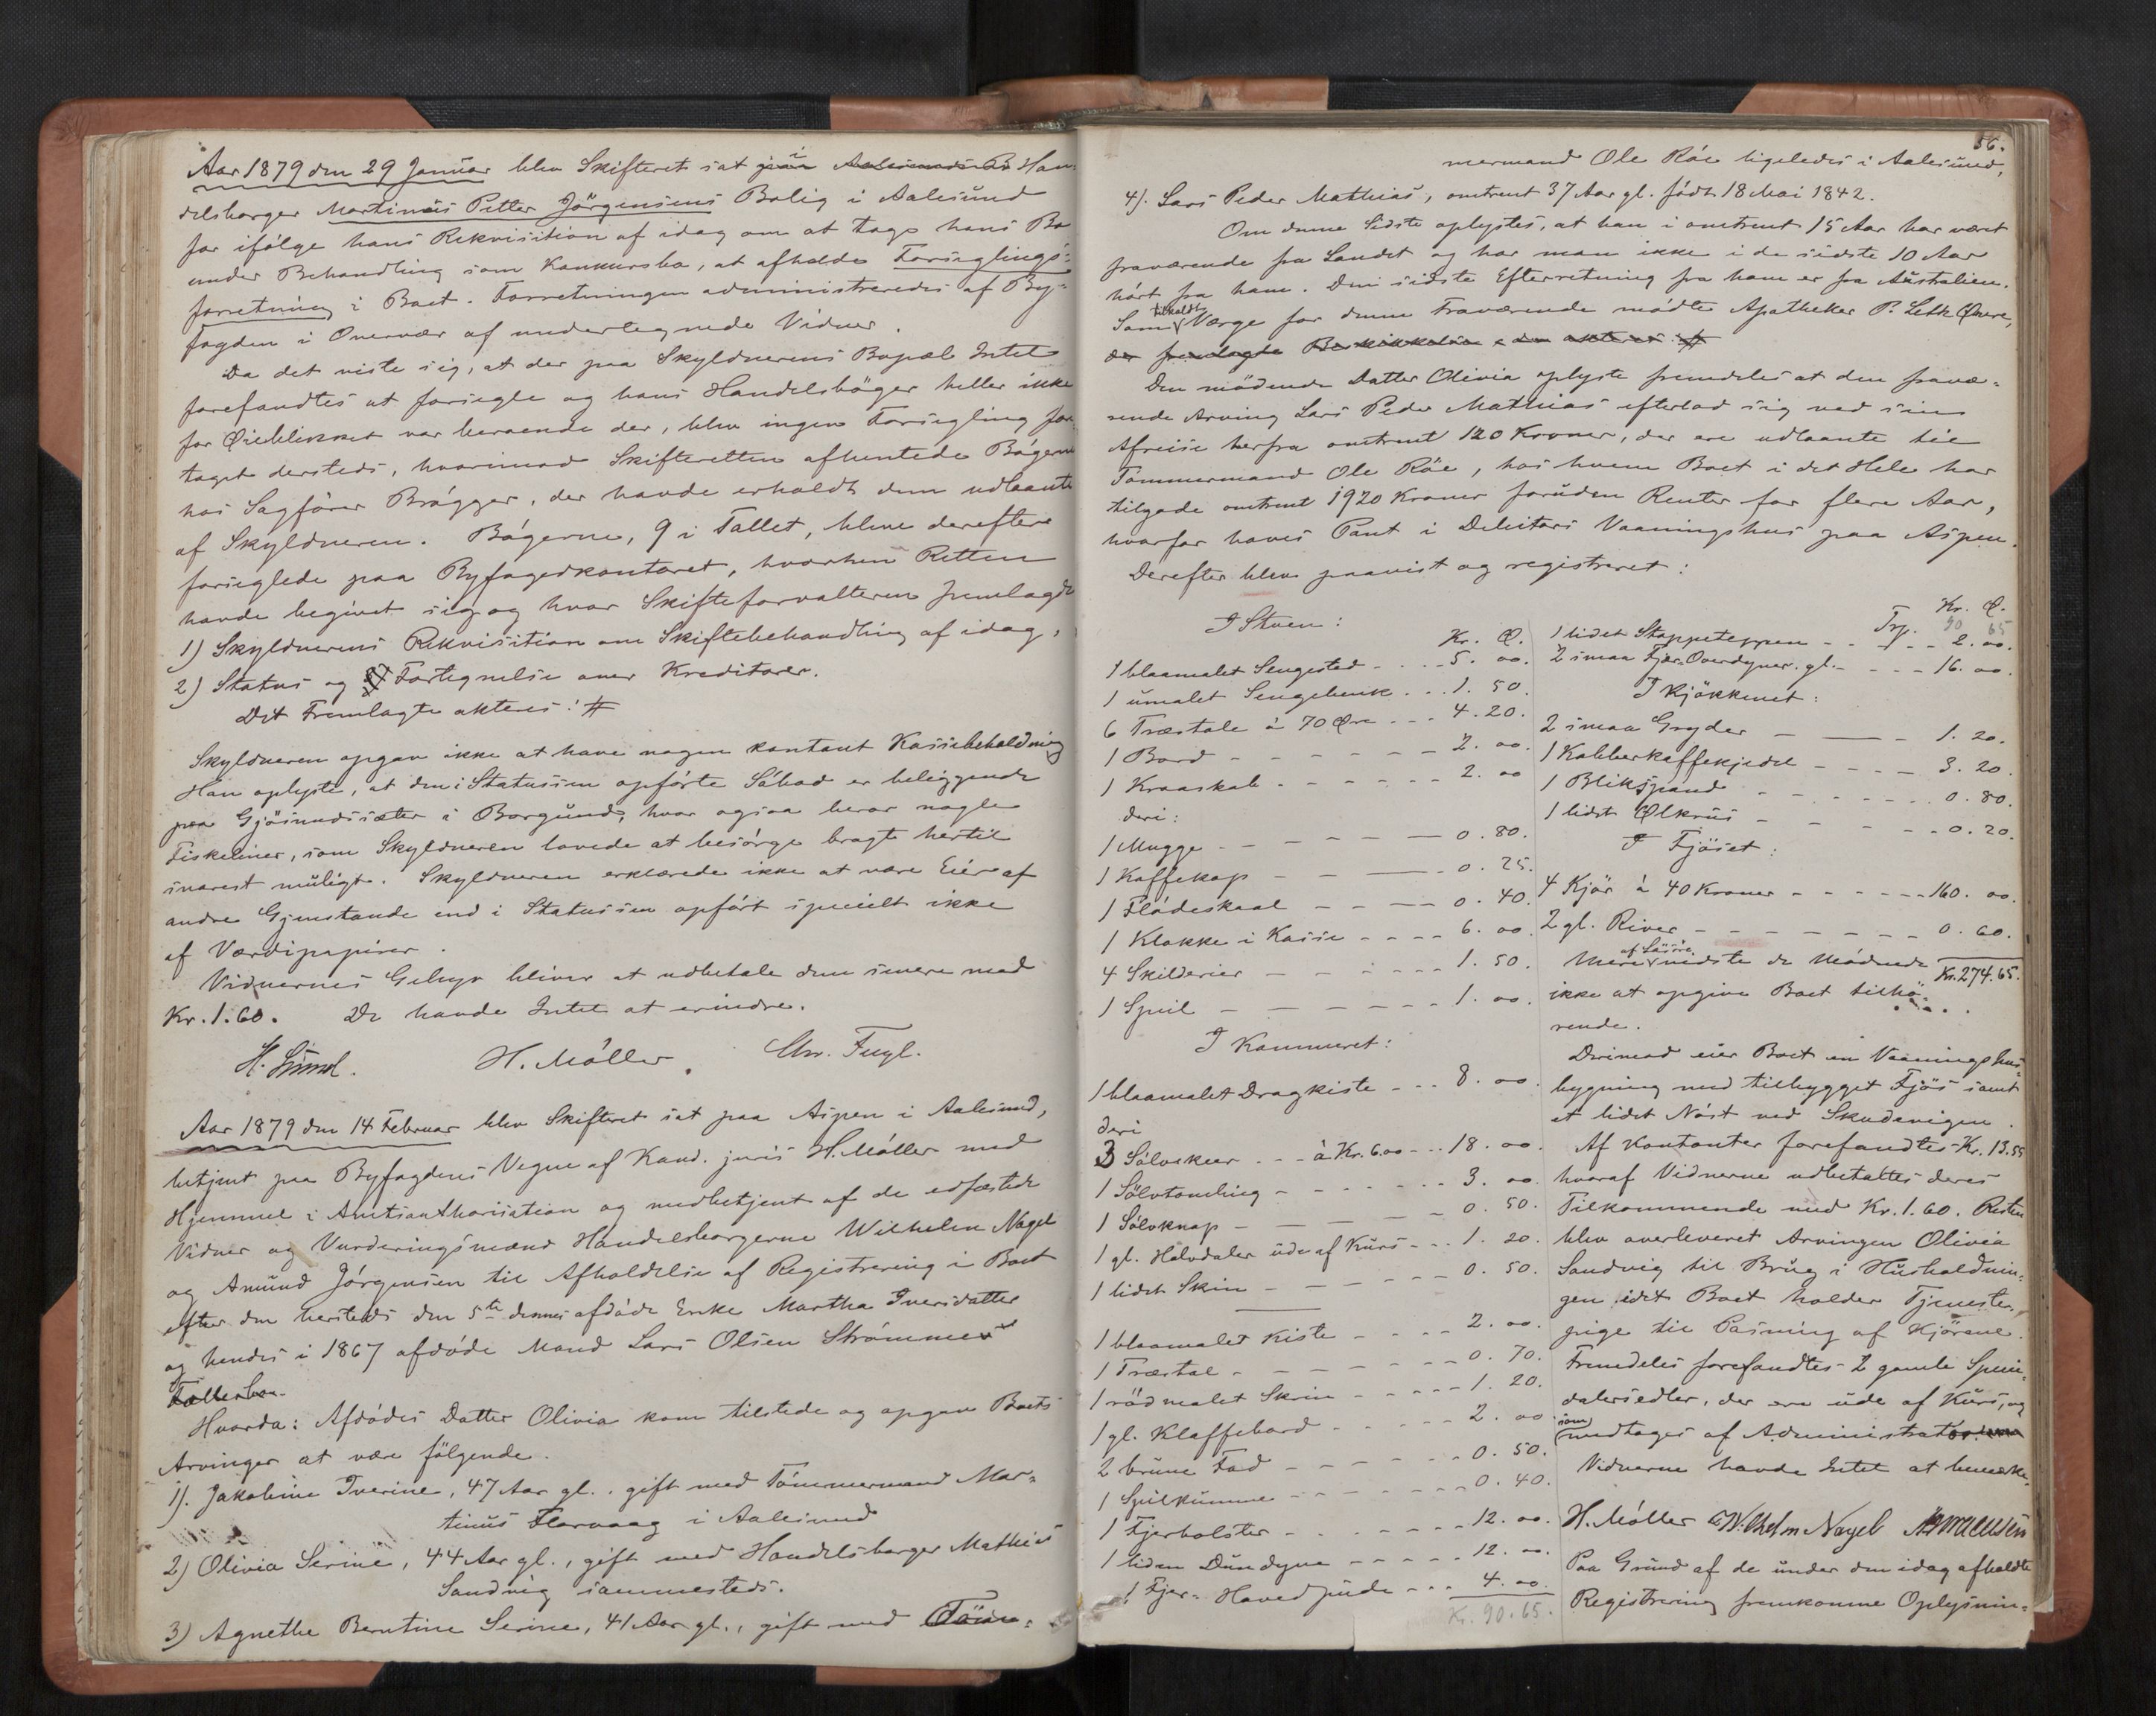 Aar 1879 den 29 Januar blev Skifteret sat i Han-
delsborger Martinus Petter Jörgensens Bolig i Aalesund
for ifölge hans Rekvisition af idag om at tage hans Bo
under Behandling som Konkursbo, at afholde Forseglings-
forretning i Boet. Forretningen administreredes af By-
fogden i Overvær af undertegnede Vidner.
Da det viste sig, at der paa Skyldnerens Bopæl Intet
forefandtes at forsegle og hans Handelsböger heller ikke
for Öieblikket var beroende der, blev ingen Forsegling fore-
taget dersteds, hvorimod Skifteretten afhentede Bögerne
hos Sagförer Brögger, der havde erholdt dem udlaante
af Skyldneren. Bögerne, 9 i Tallet, bleve derefter
forseglede paa Byfogedkontoret, hvorhen Retten
havde begivet sig og hvor Skifteforvalteren fremlagde
1) Skyldnerens Rekvisition om Skiftebehandling af idag,
2) Status og Fortegnelse over Kreditorer.
Det Fremlagte akteres: #
Skyldneren opgav ikke at have nogen kontant Kassebeholdning
Han oplyste, at den i Statussen opförte Söbod er beliggende
paa Gjösundssæter i Borgund, hvor ogsaa beror nogle
Fiskeliner, som Skyldneren lovede at besörge bragte hertil
snarest muligt. Skyldneren erklærede ikke at være Eier af
andre Gjenstande end i Statussen opfört specielt ikke
af Værdipapirer.
Vidnernes Gebyr bliver at udbetale dem senere med
Kr. 1.60. De havde Intet at erindre.
H. Möller. Chr. Fugl.
Aar 1879 den 14 Februar blev Skifteret sat paa Aspen i Aalesund,
betjent paa Byfogdens Vegne af Kand. juris H. Möller med
Hjemmel i Amtsauthorisation og medbetjent af de edfæstede
Vidner og Vurderingsmænd Handelsborgerne Wilhelm Nagel
og Amund Jörgensen til Afholdelse af Registrering i Boet
efter den hersteds den 5te dennes afdöde Enke Martha Iversdatter
og hendes i 1867 afdöde Mand Lars Olsen Strömmes
Fællesbo.
Hvorda: Afdödes Datter Olivia kom tilstede og opgav Boets
Arvinger at være fölgende.
1). Jakobine Iverine, 47 Aar gl., gift med Tömmermand Mar-
tinus Florvaag i Aalesund
2) Olivia Serine, 44 Aar gl., gift med Handelsborger Mathias
Sandvig sammesteds.
3) Agnethe Berntine Serine, 41 Aar gl., gift med Töm-
56.
mermand Ole Röe ligeledes i Aalesund,
4). Lars Peder Mathias, omtrent 37 Aar gl. födt 18 Mai 1842.
Om denne Sidste oplystes, at han i omtrent 15 Aar har været
fraværende fra Landet og har man ikke i de sidste 10 Aar
hört fra ham. Den sidste Efterretning fra ham er fra Australien.
Som tilkaldt Værge for denne Fraværende mödte Apotheker P. Leth Qvere,
der fremlagde
Den mödende Datter Olivia oplyste fremdeles at den fravæ-
rende Arving Lars Peder Mathias efterlod sig ved sin
Afreise herfra omtrent 120 Kroner, der ere udlaante til
Tömmermand Ole Röe, hos hvem Boet i det Hele har
tilgode omtrent 1920 Kroner foruden Renter for flere Aar,
hvorfor haves Pant i Debitors Vaaningshus paa Aspen.
Derefter blev paavist og registreret:
I Stuen:
Kr. Ö.
1 blaamalet Sengested - - - 5. 00.
1 umalet Sengebenk - - - 1. 50.
6 Træstole à 70 Öre - - - 4. 20.
1 Bord - - - - - 2. 00.
1 Kroaskab - - - - - 2. 00
deri:
1 Mugge - - - - 0. 80.
1 Kaffekop - - - 0. 25.
1 Flödeskaal - - - 0. 40.
1 Klokke i Kasse - - - - 6. 00.
4 Skilderier - - - - - 1. 50.
1 Speil - - - - - - 1. 00.
I Kammeret:
1 blaamalet Dragkiste - - - 8. 00.
deri
3 Sölvskeer - - - à Kr. 6.00 - - 18. 00.
1 Sölvtomling - - - - - - 3. 00.
1 Sölvknap - - - - - 0. 50.
1 gl. Halvdaler ude af Kurs - - 1. 20.
1 lidet Skrin - - - - - 0. 50.
1 blaamalet Kiste - - - - 2. 00.
1 Træstol - - - - - - 0. 70.
1 rödmalet Skrin - - - - - 1. 20.
1 gl. Klaffebord - - - - - 2. 00
2 brune Fad - - - - - 0. 50.
1 Spilkumme - - - - - - 0. 40.
1 Fjerbolster - - - - - - 12. 00.
1 liden Dundyne - - - - - 12. 00.
1 Fjer-Hovedpude - - - 4. 00.
Kr. 90. 65.
Kr. Ö.
Trp. 90 65
1 lidet Stoppeteppen - - - 2. 00.
2 smaa Fjær-Overdyner. gl. - - - - 16. 00.
I Kjökkenet:
2 smaa Gryder - - - 1. 20.
1 Kobberkaffekjedel - - - - 3. 20.
1 Blikspand - - - - - - - 0. 80.
1 lidet Ölkrus - - - - - 0. 20.
I Fjöset:
4 Kjör à 40 Kroner - - - - - 160. 00.
2 gl. River - - - - - - - 0. 60.
Mere af Lösöre vidste de Mödende Kr. 274. 65.
ikke at opgive Boet tilhö-
rende.
Derimod eier Boet en Vaaningshus-
bygning med tilbygget Fjös samt
et lidet Nöst ved Skudevigen.
Af Kontanter forefandtes Kr. 13.55
hvoraf Vidnerne udbetaltes deres
Tilkommende med Kr. 1.60. Resten
blev overleveret Arvingen Olivia
Sandvig til Brug i Husholdnin-
gen idet Boet holder Tjeneste-
pige til Pasning af Kjörene.
Fremdeles forefandtes 2 gamle Specie-
dalersedler, der ere ude af Kurs, og
som medtages af Administrator
Vidnerne havde Intet at bemærke
H. Möller Wilhelm Nagel
Paa Grund af de under den idag afholdte
Registrering fremkomne Oplysnin-